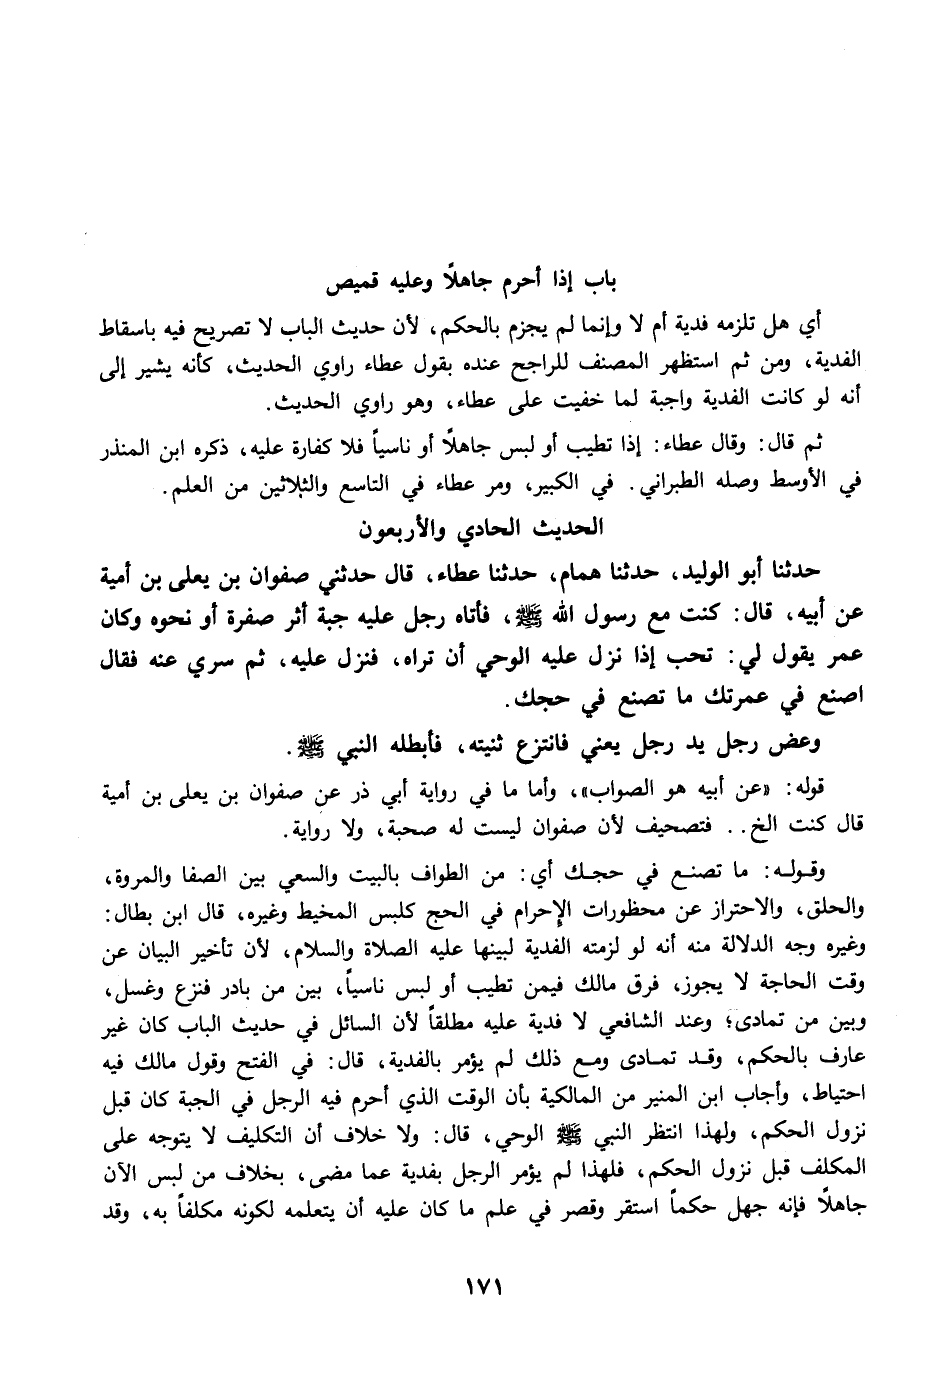 باب إذا أحرم جاهلاً وعليه قميص
أي هل تلزمه فدية أم لا وإنما لم يجزم بالحكم، لأن حديث الباب لا تصريح فيه باسقاط
الفدية، ومن ثم استظهر المصنف للراجح عنده بقول عطاء راوي الحديث، كأنه يشير إلى
أنه لو كانت الفدية واجبة لما خفيت على عطاء، وهو راوي الحديث.
ثم قال: وقال عطاء: إذا تطيب أو لبس جاهلاً أو ناسياً فلا كفارة عليه، ذكره ابن المنذر
في الأوسط وصله الطبراني. في الكبير، ومر عطاء في التاسع والثلاثين من العلم.
الحديث الحادي والأربعون
حدثنا أبو الوليد، حدثنا همام، حدثنا عطاء، قال حدثني صفوان بن يعلى بن أمية
عن أبيه، قال: كنت مع رسول الله ﷺ، فأتاه رجل عليه جبة أثر صفرة أو نحوه وكان
عمر يقول لي: تحب إذا نزل عليه الوحي أن تراه، فنزل عليه، ثم سري عنه فقال
اصنع في عمرتك ما تصنع في حجك.
وعض رجل يد رجل يعني فانتزع ثنيته، فأبطله النبي ﷺ.
قوله: «عن أبيه هو الصواب»، وأما ما في رواية أبي ذر عن صفوان بن يعلى بن أمية
قال كنت الخ.. فتصحيف لأن صفوان ليست له صحبة، ولا رواية.
وقوله: ما تصنع في حجك أي: من الطواف بالبيت والسعي بين الصفا والمروة،
والحلق، والاحتراز عن محظورات الإحرام في الحج كلبس المخيط وغيره، قال ابن بطال:
وغيره وجه الدلالة منه أنه لو لزمته الفدية لبينها عليه الصلاة والسلام، لأن تأخير البيان عن
وقت الحاجة لا يجوز، فرق مالك فيمن تطيب أو لبس ناسياً، بين من بادر فنزع وغسل،
وبين من تمادى؛ وعند الشافعي لا فدية عليه مطلقاً لأن السائل في حديث الباب كان غير
عارف بالحكم، وقد تمادى ومع ذلك لم يؤمر بالفدية، قال: في الفتح وقول مالك فيه
احتياط، وأجاب ابن المنير من المالكية بأن الوقت الذي أحرم فيه الرجل في الجبة كان قبل
نزول الحكم، ولهذا انتظر النبي ﷺ الوحي، قال: ولا خلاف أن التكليف لا يتوجه على
المكلف قبل نزول الحكم، فلهذا لم يؤمر الرجل بفدية عما مضى، بخلاف من لبس الآن
جاهلاً فإنه جهل حكماً استقر وقصر في علم ما كان عليه أن يتعلمه لكونه مكلفاً به، وقد
١٧١